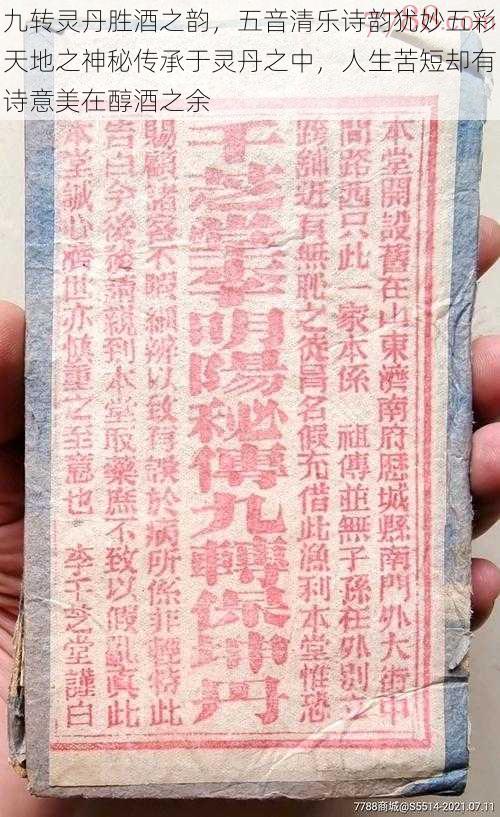 九转灵丹胜酒之韵，五音清乐诗韵犹妙五彩
天地之神秘传承于灵丹之中，人生苦短却有
诗意美在醇酒之余
本堂開設舊在山東濟南府歷城縣南門外大街中
間路西只此一家本係 祖傳並無子孫在外別立
跨鋪近有無恥之徒冐名假充借此漁利本堂惟恐
千芝堂李明陽秘傳九轉保坤丹
賜顧諸客不暇細辦以致有誤於病所係非輕特此
告白今後後蒲親到本堂取藥庶不致以假亂真此
本堂誠心濟世亦慎重之至意也 李千芝堂謹白
7788商城@S5514-2021.07.11